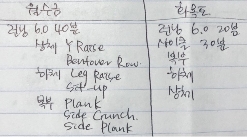 월수금
런닝 6.0 40분
상체 Y Raise
Bentover Row.
하체 Leg Raise
Set up
복부 Plank
Side Crunch.
Side Plank
화목토
런닝 6.0 20분
사이클 30분
복부
하체
상체